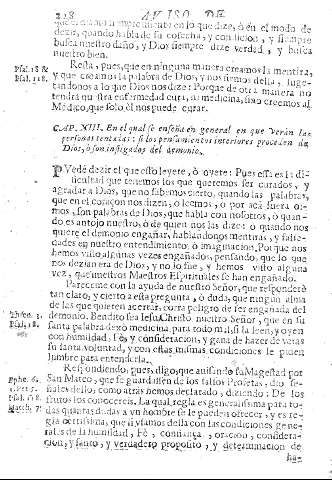 218 AVISO DE
que entonces imprentamos en lo que dize, ò en el modo de
dezir, quando habla de su cosecha, y con ficion, y siempre
busca nuestro daño, y Dios siempre dize verdad, y busca
nuestro bien.
Psal. 18 & Resta, pues, que en ninguna manera creamos la mentira,
Psal. 118. y que creamos la palabra de Dios, y nos firmos della, suge-
tandonos a lo que Dios nos dize: Porque de otra manera no
tendra nuestra enfermedad cura, ni medicina, sino creemos al
Medico, que solo èl nos puede curar.
CAP. XIII. En el qual se enseña en general en que veràn las
personas tentadas: si los pensamientos interiores proceden de
Dios, ò son instigados del demonio.
PVede dezir el que esto leyere, ò oyere: Pues essa es la di-
ficultad que tenemos los que queremos ser curados, y
agradar a Dios, que no sabemos cierto, quando las palabras,
que en el coraçon nos dizen, o leemos, o por acà fuera oi-
mos, son palabras de Dios, que habla con nosotros, ò quan-
do es antojo nuestro, ò de quien nos las dize: o quando nos
quiere el demonio engañar, hablandonos mentiras, y falseda-
dades en nuestro entendimiento, ò imaginacion, Porque nos
hemos visto algunas vezes engañados, pensando, que lo que
nos dezian era de Dios, y no lo fue, y hemos visto alguna
vez, que nuestros Maestros Espirituales se han engañado.
Pareceme con la ayuda de nuestro Señor, que responderè
tan claro, y cierto a esta pregunta, ò duda, que ningun alma
de las que quieren acertar, corra peligro de ser engañada del
demonio. Bendito sea Iesu Christo nuestro Señor, que en su
Psal. 18. santa palabra dexò medicina para todo mal, si la leen, y oyen
con humildad, Fè, y consideracion, y gana de hazer de veras
su santa voluntad, y con estas mismas condiciones le piden
lumbre para entenderla.
Respondiendo, pues, digo, que auisando su Magestad por
Ephe. 6. San Mateo, que se guardassen de los falsos Profetas, dio se-
ñales dello, como atràs hemos declarado, diziendo: De los
Psal. 118. frutos los conocereis. La qual regla es generalissima para to-
Matth. 7. das quantas dudas a vn hombre se le pueden ofrecer, y es re-
gla certissima, que si vsamos della con las condiciones genera-
rales de la humildad, Fè, confiança, oracion, considera-
cion, y santo, y verdadero proposito, y determinacion de